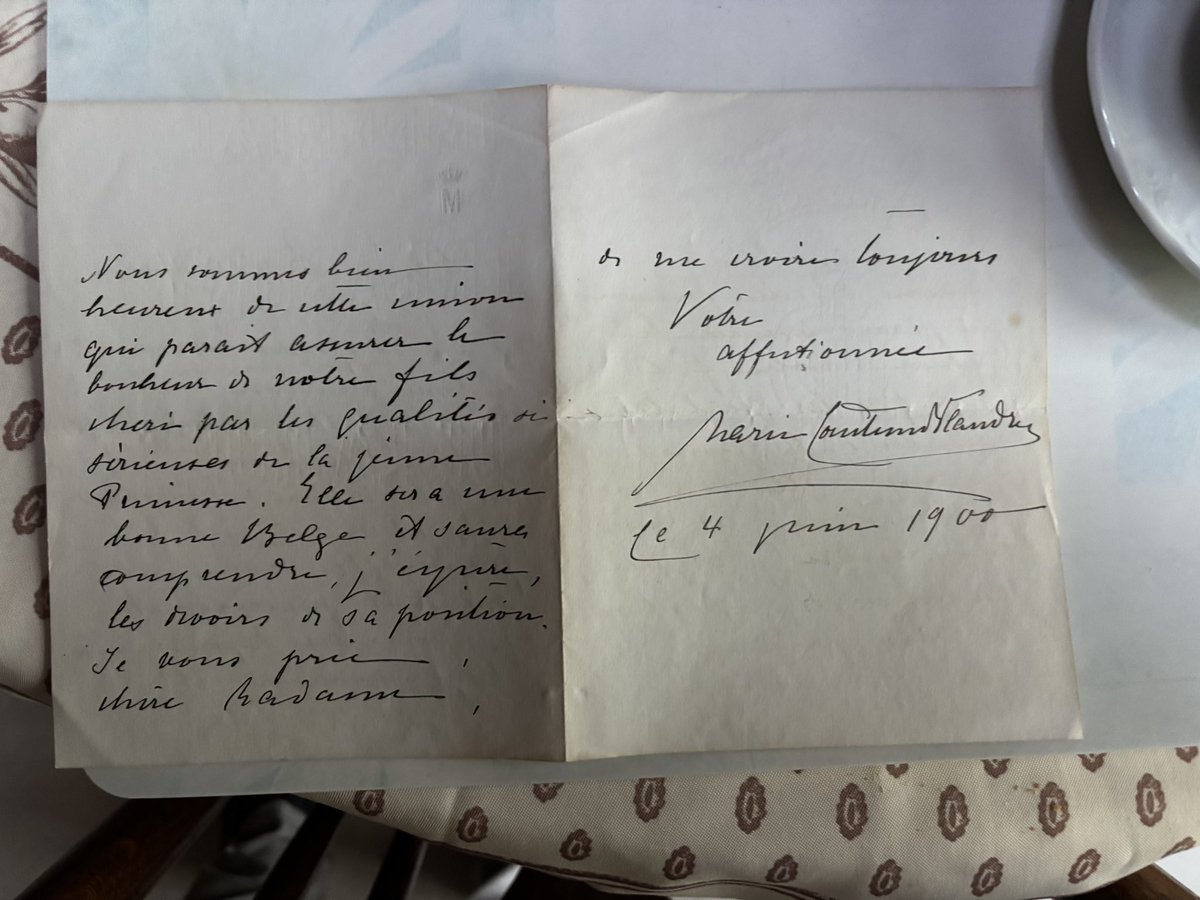 M
Nous sommes bien
heureux de cette union
qui parait assurer le
bonheur de notre fils
cheri par les qualités si
sérieuses de la jeune
Princesse. Elle sera une
bonne Belge et saura
comprendre, j'espère,
les devoirs de sa position.
Je vous prie,
chère Madame,
de me croire toujours
Votre
affectionnée
Marie Comtesse de Flandre
Le 4 juin 1900